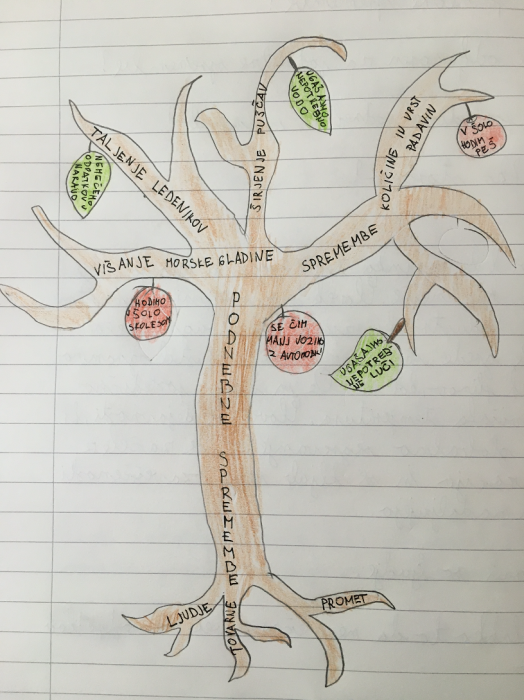 UGAŠAJMO
NEPOTREBNO
VODO
V ŠOLO
HODIM
PEŠ
KOLIČINE IN VRST
PADAVIN
ŠIRJENJE PUŠČAV
TALJENJE LEDENIKOV
NEMEČEMO
ODPATKOV V
NARAVO
VIŠANJE MORSKE GLADINE
SPREMEMBE
HODIMO
V ŠOLO
SKOLESOM
SE ČIM
MANJ VOZIMO
Z AVTOMOBILI
UGAŠAJMO
NEPOTREB-
NE LUČI
PODNEBNE SPREMEMBE
LJUDJE
TOVARNE
PROMET